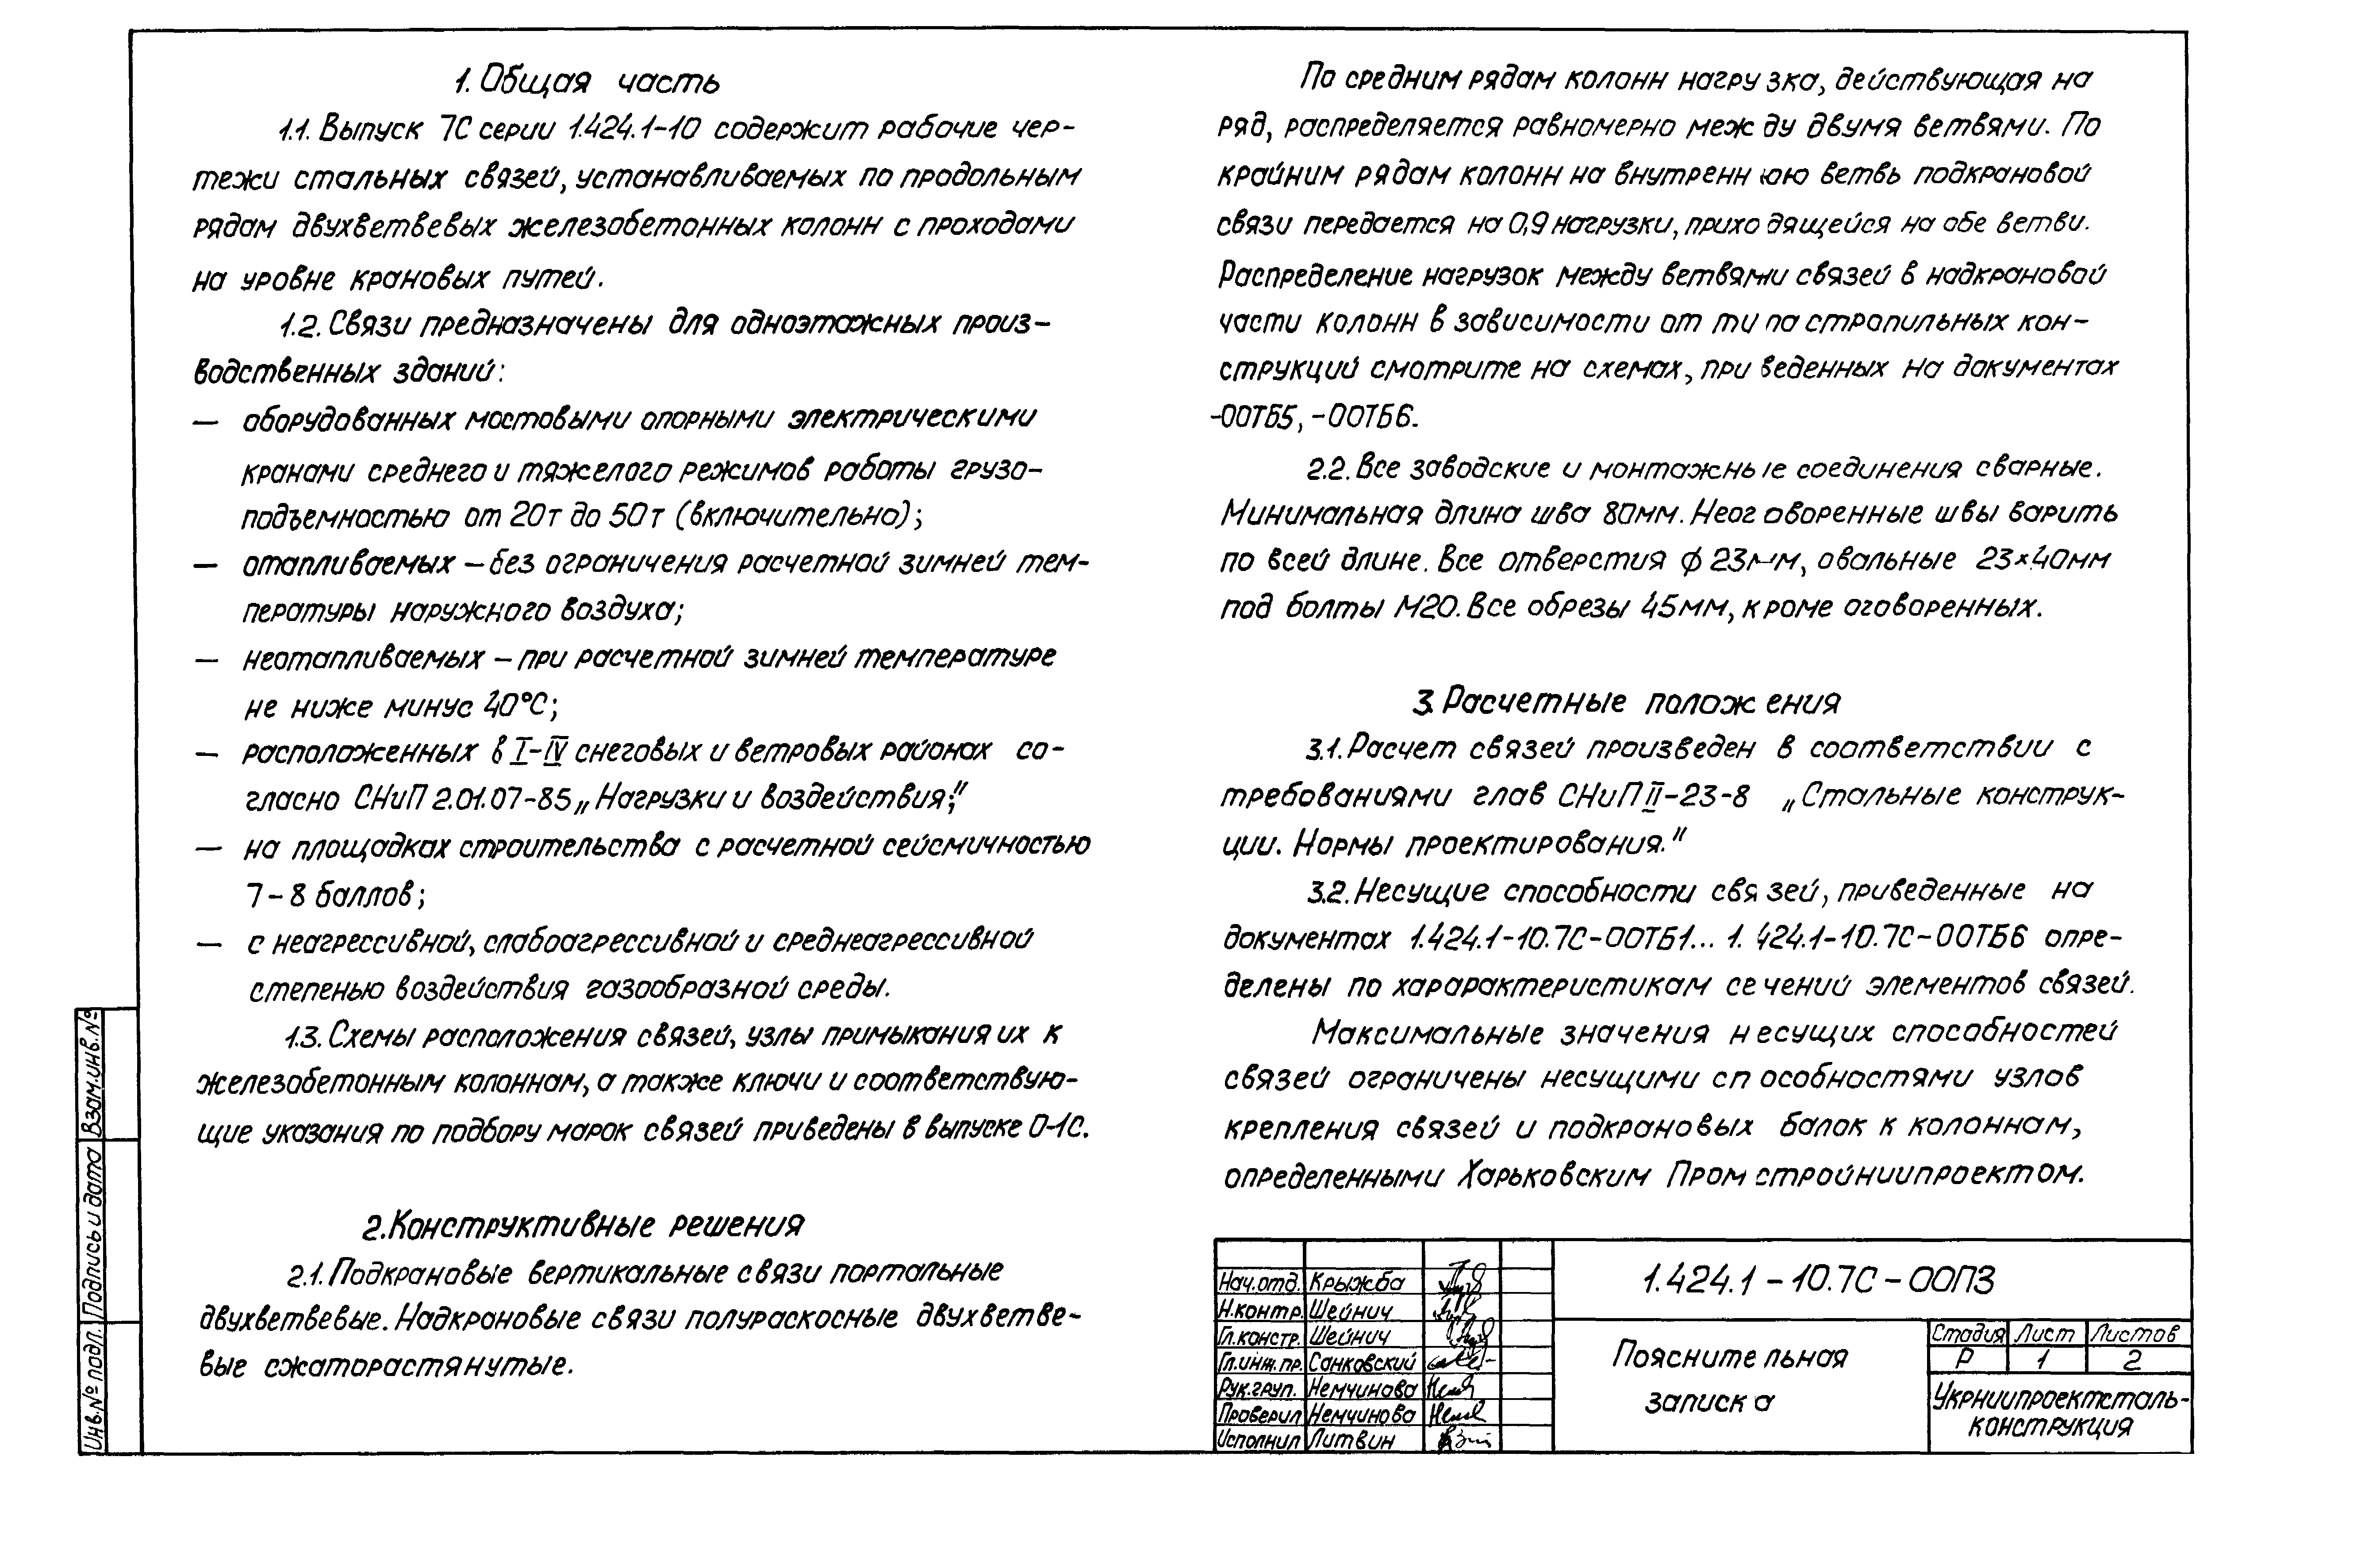 1. Общая часть
1.1. Выпуск 7С серии 1.424.1-10 содержит рабочие чер-
тежи стальных связей, устанавливаемых по продольным
рядам двухветвевых железобетонных колонн с проходами
на уровне крановых путей.
1.2. Связи предназначены для одноэтажных произ-
водственных зданий:
— оборудованных мостовыми опорными электрическими
кранами среднего и тяжелого режимов работы грузо-
подъемностью от 20т до 50т (включительно);
— отапливаемых – без ограничения расчетной зимней тем-
пературы наружного воздуха;
— неотапливаемых – при расчетной зимней температуре
не ниже минус 40°С;
— расположенных в I-IV снеговых и ветровых районах со-
гласно СНиП 2.01.07-85 „Нагрузки и воздействия;"
— на площадках строительства с расчетной сейсмичностью
7-8 баллов;
— с неагрессивной, слабоагрессивной и среднеагрессивной
степенью воздействия газообразной среды.
1.3. Схемы расположения связей, узлы примыкания их к
железобетонным колоннам, а также ключи и соответствую-
щие указания по подбору марок связей приведены в выпуске 0-1С.
2. Конструктивные решения
2.1. Подкрановые вертикальные связи портальные
двухветвевые. Надкрановые связи полураскосные двухветве-
вые сжаторастянутые.
По средним рядам колонн нагрузка, действующая на
ряд, распределяется равномерно между двумя ветвями. По
крайним рядам колонн на внутреннюю ветвь подкрановой
связи передается на 0,9 нагрузки, приходящейся на обе ветви.
Распределение нагрузок между ветвями связей в надкрановой
части колонн в зависимости от типа стропильных кон-
струкций смотрите на схемах, приведенных на документах
-00ТБ5, -00ТБ6.
2.2. Все заводские и монтажные соединения сварные.
Минимальная длина шва 80мм. Неоговоренные швы варить
по всей длине. Все отверстия ϕ 23мм, овальные 23×40мм
под болты М20. Все обрезы 45мм, кроме оговоренных.
3. Расчетные положения
3.1. Расчет связей произведен в соответствии с
требованиями глав СНиП II-23-8 „Стальные конструк-
ции. Нормы проектирования."
3.2. Несущие способности связей, приведенные на
документах 1.424.1-10.7С-00ТБ1... 1.424.1-10.7С-00ТБ6 опре-
делены по харарактеристикам сечений элементов связей.
Максимальные значения несущих способностей
связей ограничены несущими способностями узлов
крепления связей и подкрановых балок к колоннам,
определенными Харьковским Промстройниипроектом.
Нач.отд. Крыжба
Н.контр. Шейнич
Гл.констр. Шейнич
Гл.инж.пр. Санковский
Рук.груп. Немчинова
Проверил Немчинова
Исполнил Литвин
1.424.1-10.7С-00ПЗ
Пояснительная
записка
Стадия Лист Листов
Р 1 2
Укрниипроектсталь-
конструкция
Взам.инв.№
Подпись и дата
Инв.№ подл.